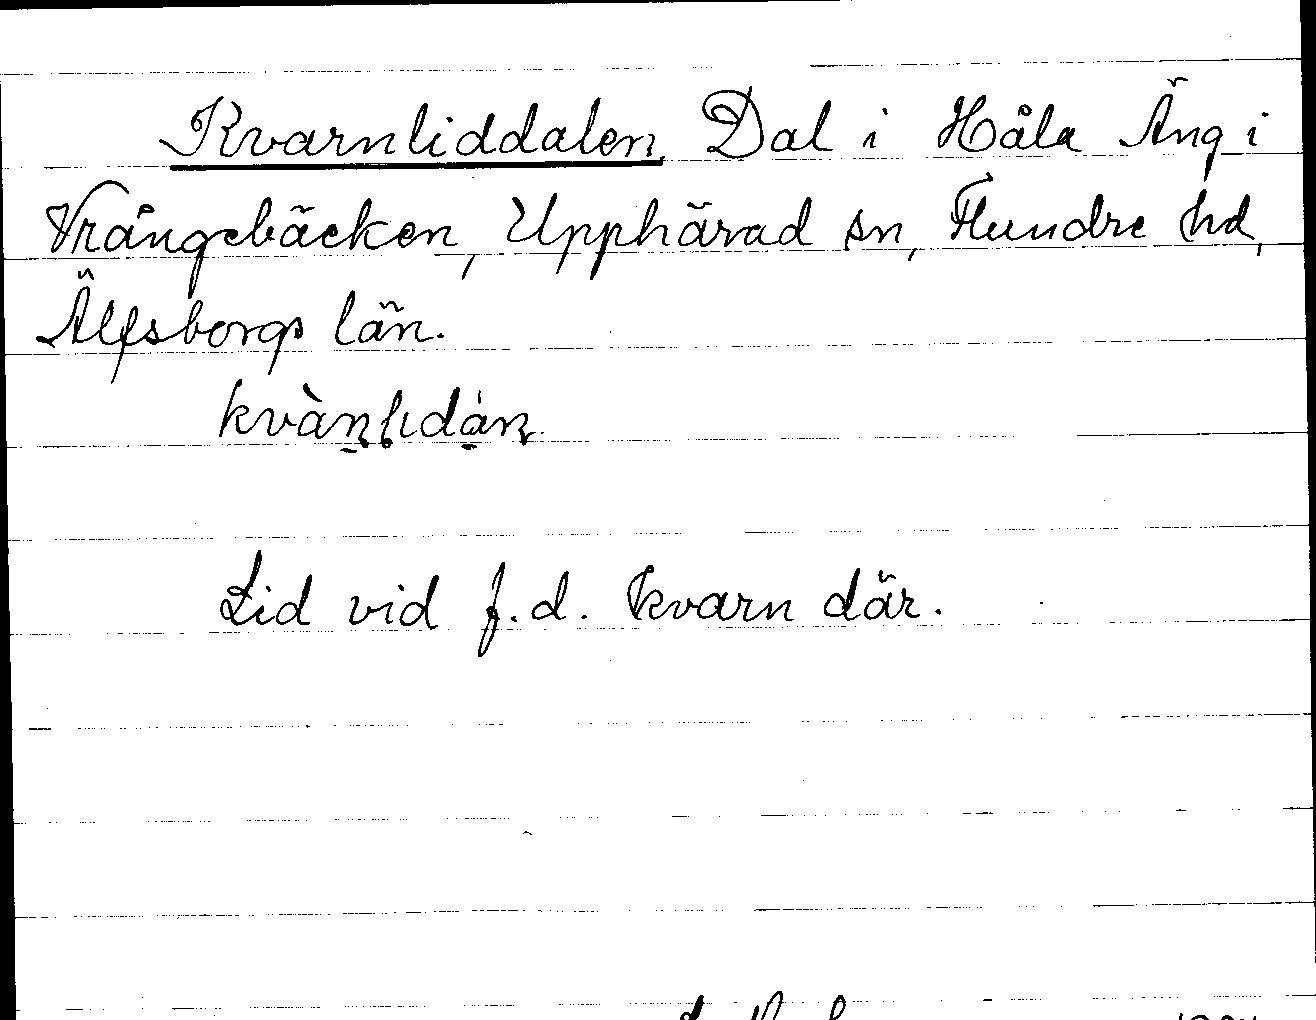 Kvarnliddalen Dal i Håla Äng i
Vrångebäcken, Upphärad sn, Flundre hd,
Älfsborgs län.
Lid vid f.d. kvarn där.